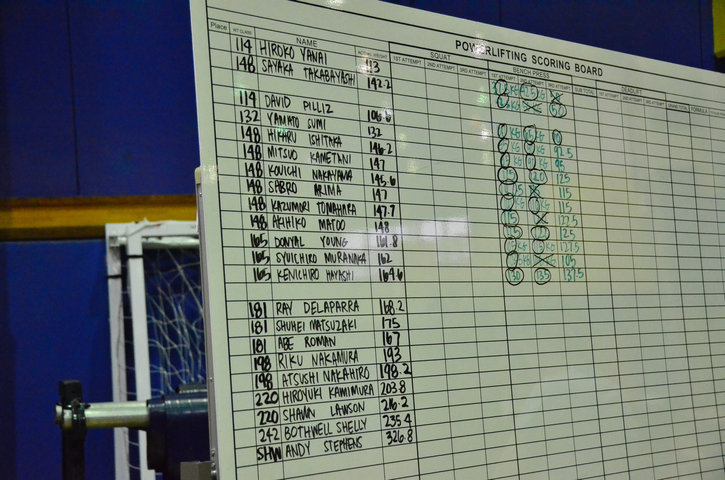 POWERLIFTING SCORING BOARD
Place WT CLASS NAME ACTUAL WEIGHT SQUAT BENCH PRESS DEADLIFT
1ST ATTEMPT 2ND ATTEMPT 3RD ATTEMPT 1ST ATTEMPT 2ND ATTEMPT 3RD ATTEMPT SUB TOTAL 1ST ATTEMPT 2ND ATTEMPT 3RD ATTEMPT GRAND TOTAL FORMULA
114 HIROKO YANAI 113
148 SAYAKA TAKABAYASHI 142.2
114 DAVID PILLIZ
132 YAMATO SUMI 132
148 HIKARU ISHITAKA 146.2 92.5
148 MITSUO KAMETANI 147
148 KOUICHI NAKAYAMA 145.6 120 125
148 SABRO ARIMA 147 115
148 KAZUMORI TOMAHARA 147.7 115
148 AKIHIKO MATOO 148 115
165 DONYAL YOUNG 161.8
165 SYUICHIRO MURANAKA 162 105
165 KENICHIRO HAYASHI 164.6 130 135 137.5
181 RAY DELAPARRA 168.2
181 SHUHEI MATSUZAKI 175
181 ABE ROMAN 167
198 RIKU NAKAMURA 193
198 ATSUSHI NAKAHIRO 198.2
220 HIROYUKI KAWIMURA 203.8
220 SHAWN LAWSON 216.2
242 BOTHWELL SHELLY 235.4
SHW ANDY STEPHENS 326.8